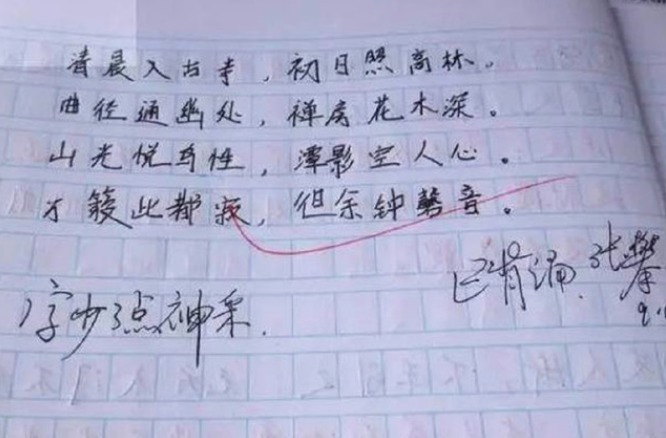 清晨入古寺，初日照高林。
曲径通幽处，禅房花木深。
山光悦鸟性，潭影空人心。
籁此都寂，但余钟磬音。
已背诵 张攀
字少了点神采.